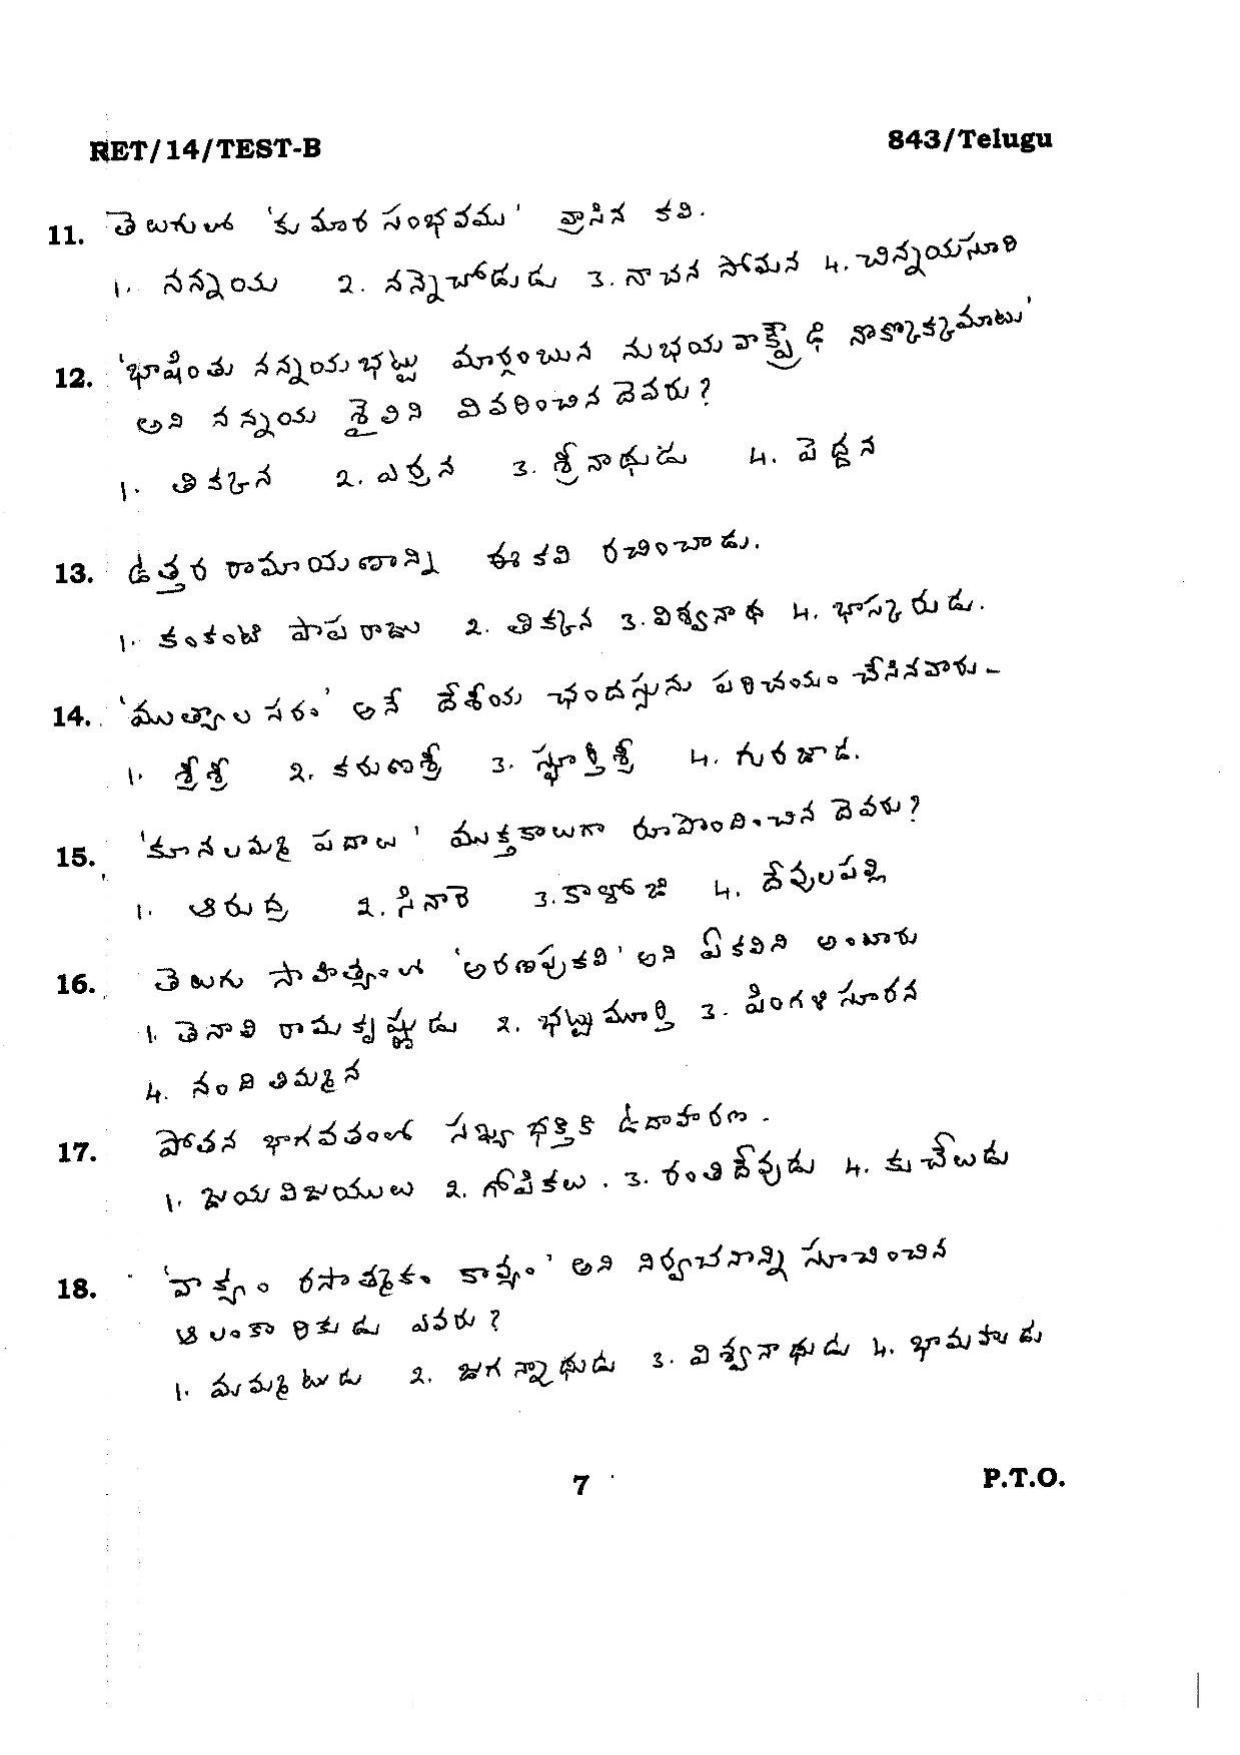 RET/14/TEST-B 843/Telugu
11. తెలుగులో 'కుమార సంభవము' వ్రాసిన కవి.
1. నన్నయ 2. నన్నెచోడుడు 3. నాచన సోమన 4. చిన్నయసూరి
12. 'భాషింతు నన్నయభట్టు మార్గంబున నుభయ వాక్ప్రౌఢి నొక్కొక్కమాటు'
అని నన్నయ శైలిని వివరించిన దెవరు?
1. తిక్కన 2. ఎర్రన 3. శ్రీనాథుడు 4. పెద్దన
13. ఉత్తర రామాయణాన్ని ఈ కవి రచించాడు.
1. కంకంటి పాపరాజు 2. తిక్కన 3. విశ్వనాథ 4. భాస్కరుడు.
14. 'ముత్యాల సరం' అనే దేశీయ ఛందస్సును పరిచయం చేసినవారు -
1. శ్రీశ్రీ 2. కరుణశ్రీ 3. స్ఫూర్తిశ్రీ 4. గురజాడ.
15. 'కూనలమ్మ పదాలు' ముక్తకాలుగా రూపొందించిన దెవరు?
1. ఆరుద్ర 2. సినారె 3. కాళోజి 4. దేవులపల్లి
16. తెలుగు సాహిత్యంలో 'అరణపుకవి' అని ఏ కవిని అంటారు
1. తెనాలి రామకృష్ణుడు 2. భట్టుమూర్తి 3. పింగళి సూరన
4. నంది తిమ్మన
17. పోతన భాగవతంలో సఖ్య భక్తికి ఉదాహరణ.
1. జయవిజయులు 2. గోపికలు. 3. రంతిదేవుడు 4. కుచేలుడు
18. 'వాక్యం రసాత్మకం కావ్యం' అని నిర్వచనాన్ని సూచించిన
ఆలంకారికుడు ఎవరు?
1. మమ్మటుడు 2. జగన్నాథుడు 3. విశ్వనాథుడు 4. భామహుడు
7 P.T.O.